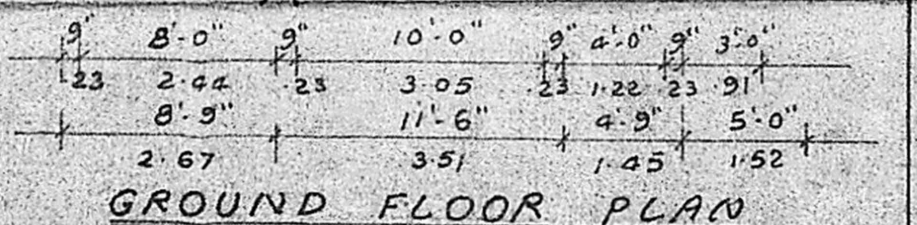 9" 8'-0" 9" 10'-0" 9" 4'-0" 9" 3'-0"
.23 2.44 .23 3.05 .23 1.22 .23 .91
8'-9" 11'-6" 4'-9" 5'-0"
2.67 3.51 1.45 1.52
GROUND FLOOR PLAN